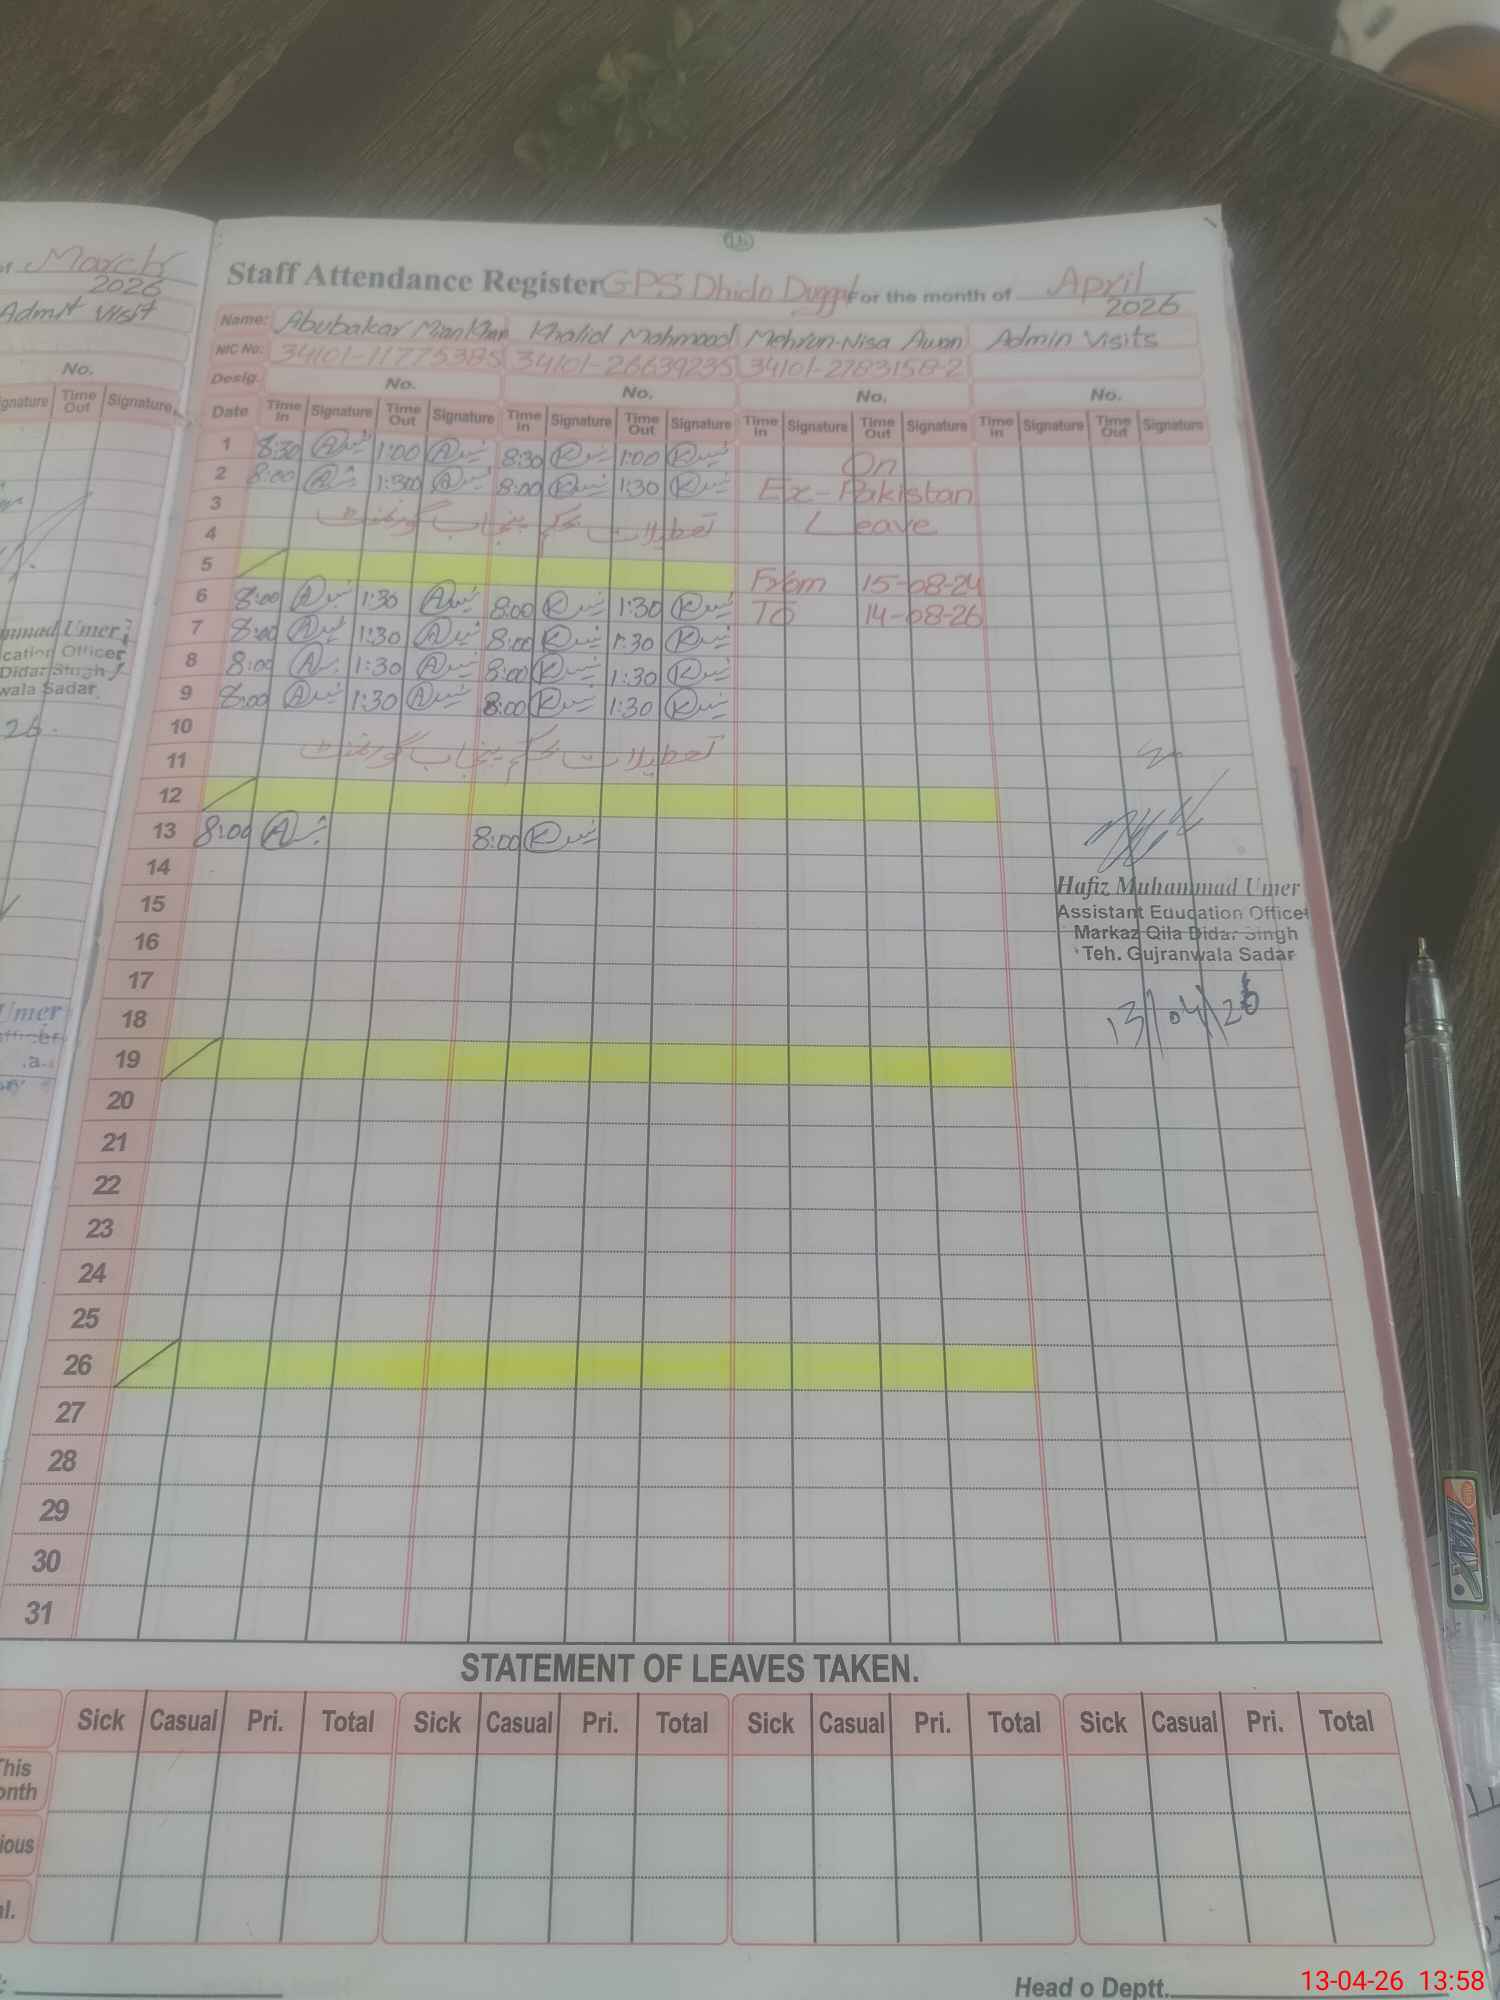 March
2026
Admit Visit
No.
Time Out Signature
Staff Attendance Register GPS Dhido Duggal For the month of April
2026
Name: Abubakar Mian Khan Khalid Mahmood Mehrun-Nisa Awan Admin Visits
NIC No: 34101-11775385 34101-26639235 34101-2783158-2
Desig. No. No. No. No.
Date Time In Signature Time Out Signature Time In Signature Time Out Signature Time In Signature Time Out Signature Time In Signature Time Out Signature
1 8:30 1:00 8:30 1:00 On
2 8:00 1:30 8:00 1:30 Ex-Pakistan
3 تعطیلات بحکم پنجاب گورنمنٹ Leave
4
5 From 15-08-24
6 8:00 1:30 8:00 1:30 TO 14-08-26
7 8:00 1:30 8:00 1:30
8 8:00 1:30 8:00 1:30
9 8:00 1:30 8:00 1:30
10
11 تعطیلات بحکم پنجاب گورنمنٹ
12
13 8:00 8:00
14
Hafiz Muhammad Umer
15
Assistant Education Officer
Markaz Qila Didar Singh
16
Teh. Gujranwala Sadar
17
13/04/26
18
19
20
21
22
23
24
25
26
27
28
29
30
31
STATEMENT OF LEAVES TAKEN.
Sick Casual Pri. Total Sick Casual Pri. Total Sick Casual Pri. Total Sick Casual Pri. Total
Head o Deptt.
13-04-26 13:58